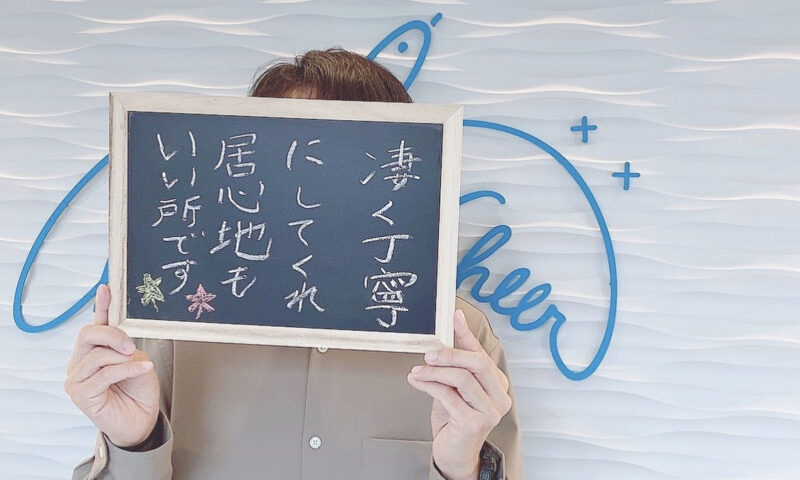 凄く丁寧
にしてくれ
居心地も
いい所です
cheer